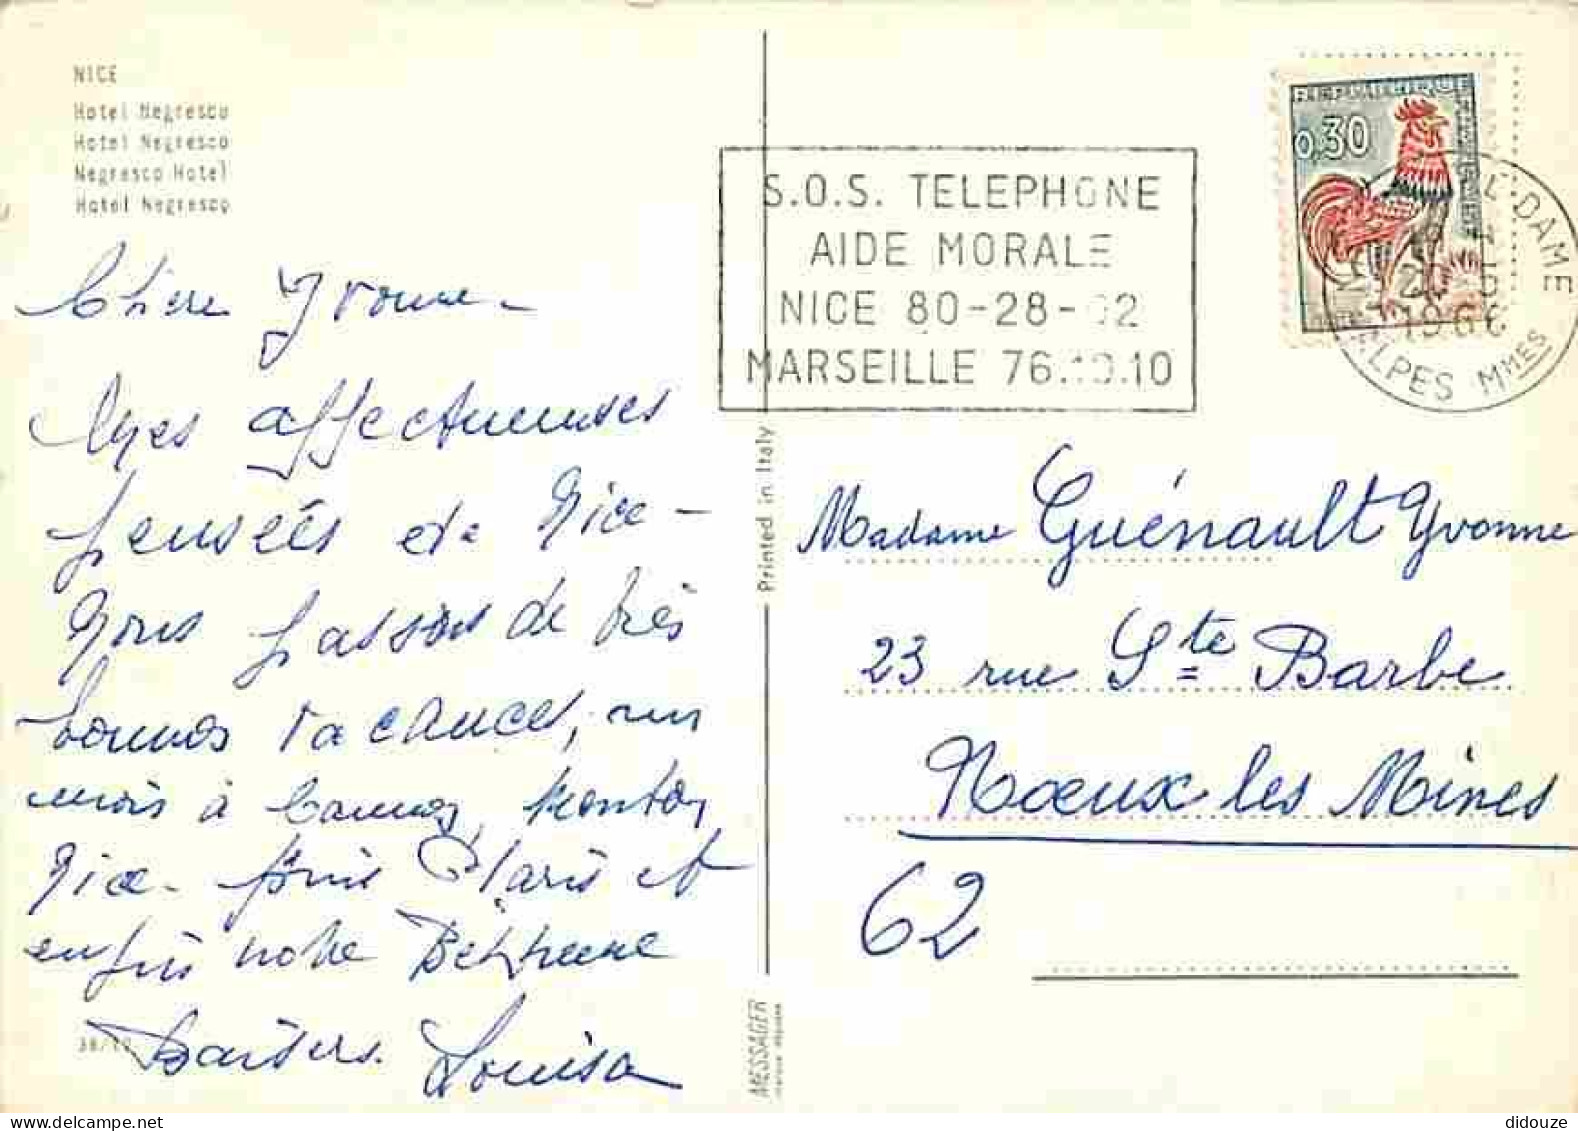 NICE
Hotel Negresco
Hotel Negresco
Negresco Hotel
Hotel Negresco
S.O.S. TELEPHONE
AIDE MORALE
NICE 80-28-02
MARSEILLE 76.10.10
0,30
L'DAME
1966
ALPES MMES
Chère Yvonne -
affectueuses
pensées de Nice -
Nous passons de très
bonnes vacances, un
mois à Cannes, Menton,
Nice - puis Paris et
enfin notre Béthune
Baisers. Louisa
38/
Printed in Italy
MESSAGER
Madame Guénault Yvonne
23 rue Ste Barbe
Noeux les Mines
62
didouze